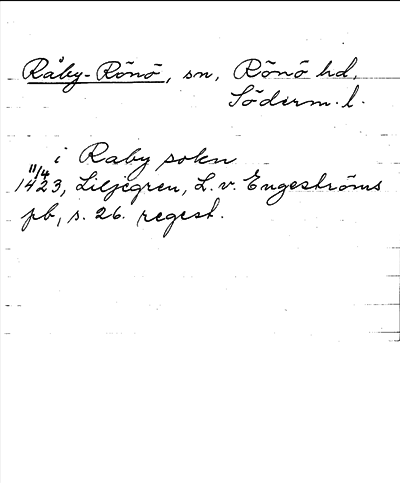 Råby-Rönö, sn, Rönö hd,
Söderm. l.
i Raby sokn
11/4
1423, Liljegren, L. v. Engeströms
pb, s. 26. regest.